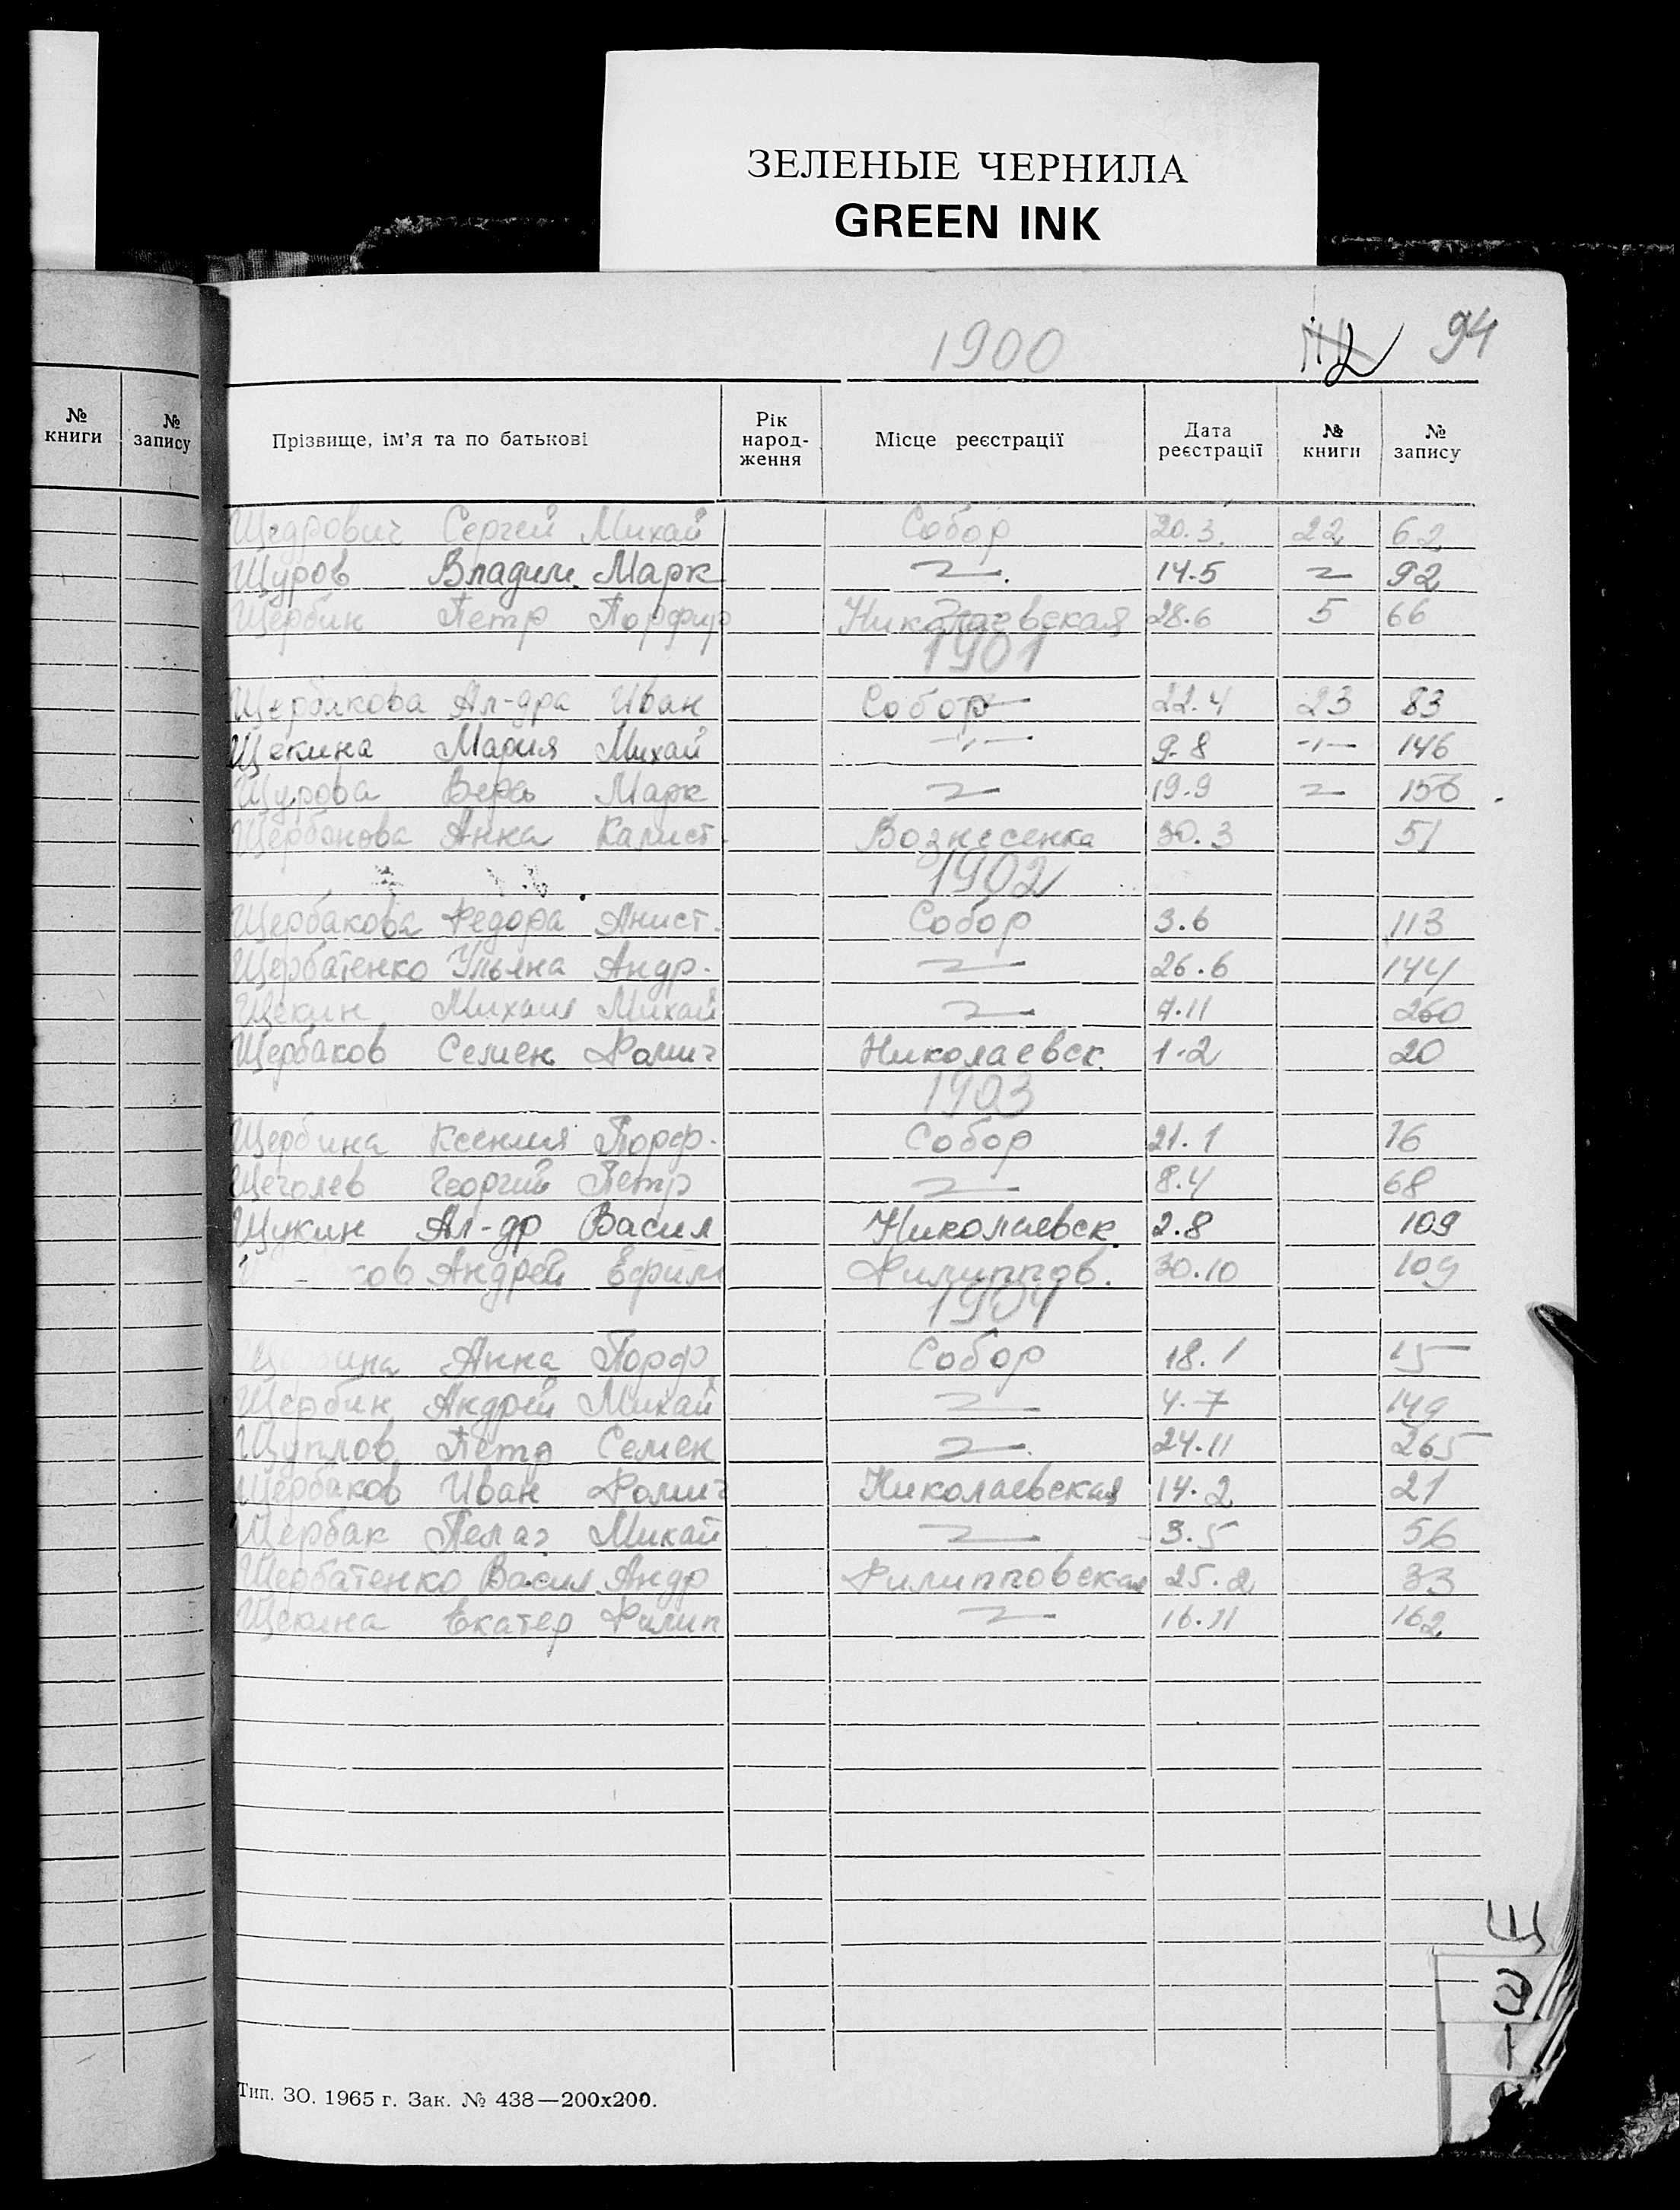 ЗЕЛЕНЫЕ ЧЕРНИЛА
GREEN INK
1900 94
№ книги № запису
Прізвище, ім'я та по батькові Рік народ-ження Місце реєстрації Дата реєстрації № книги № запису
Щедрович Сергей Михай Собор 20.3. 22 62
Щуров Владим. Марк 14.5 92
Щербин Петр Порфир Николаевская 28.6 5 66
1901
Щербакова Ал-дра Иван Собор 22.4 23 83
Щекина Мария Михай -"- 9.8 -"- 146
Щурова Вера Марк 19.9
Анна Калист. Вознесенка 30.3 51
1902
Щербакова Федора Анист. Собор 3.6 113
Щербатенко Ульяна Андр. 26.6 144
Щекин Михаил Михай 260
Щербаков Семен Фомич Николаевск. 1.2 20
1903
Щербина Ксения Порф. Собор 21.1 16
Щеголев Георгий Петр 8.4 68
Щукин Ал-др Васил Николаевск. 2.8 109
ков Андрей Ефим Филиппов. 30.10 109
1904
Анна Порф Собор 18.1 15
Щербин Андрей Михай 4.7 149
Щуплов Петр Семен 24.11 265
Щербаков Иван Фомич Николаевская 14.2 21
Щербак Пелаг Михай 3.5 56
Щербатенко Васил Андр Филипповская 25.2 33
Щекина Екатер Филип 16.11 162
Щ
Э
Тип. ЗО. 1965 г. Зак. № 438—200x200.